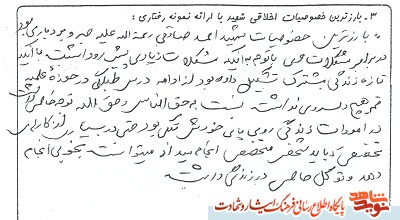 ۳ـ بارزترین خصوصیات اخلاقی شهید با ارائه نمونه رفتاری:
بارزترین خصوصیات شهید احمد صادقی رحمة الله علیه صبر و بردباری بود
در برابر مشکلات با توجه به اینکه مشکلات زیادی پیش رو داشت با آنکه
تازه زندگی مشترک تشکیل داده بود از ادامه درس طلبگی در حوزه علمیه
قم هیچ نداشت. نسبت به حق الناس و حق الله توجه خاص داشت
در امورات زندگی روی پای خودش متکی بود حتی در بسیاری از کارهای
تخصصی که باید شخص متخصص انجام میداد میتوانست بخوبی انجام
دهد و توکل خاصی در زندگی داشت.
نوید شاهد
پایگاه اطلاع رسانی فرهنگ ایثار و شهادت